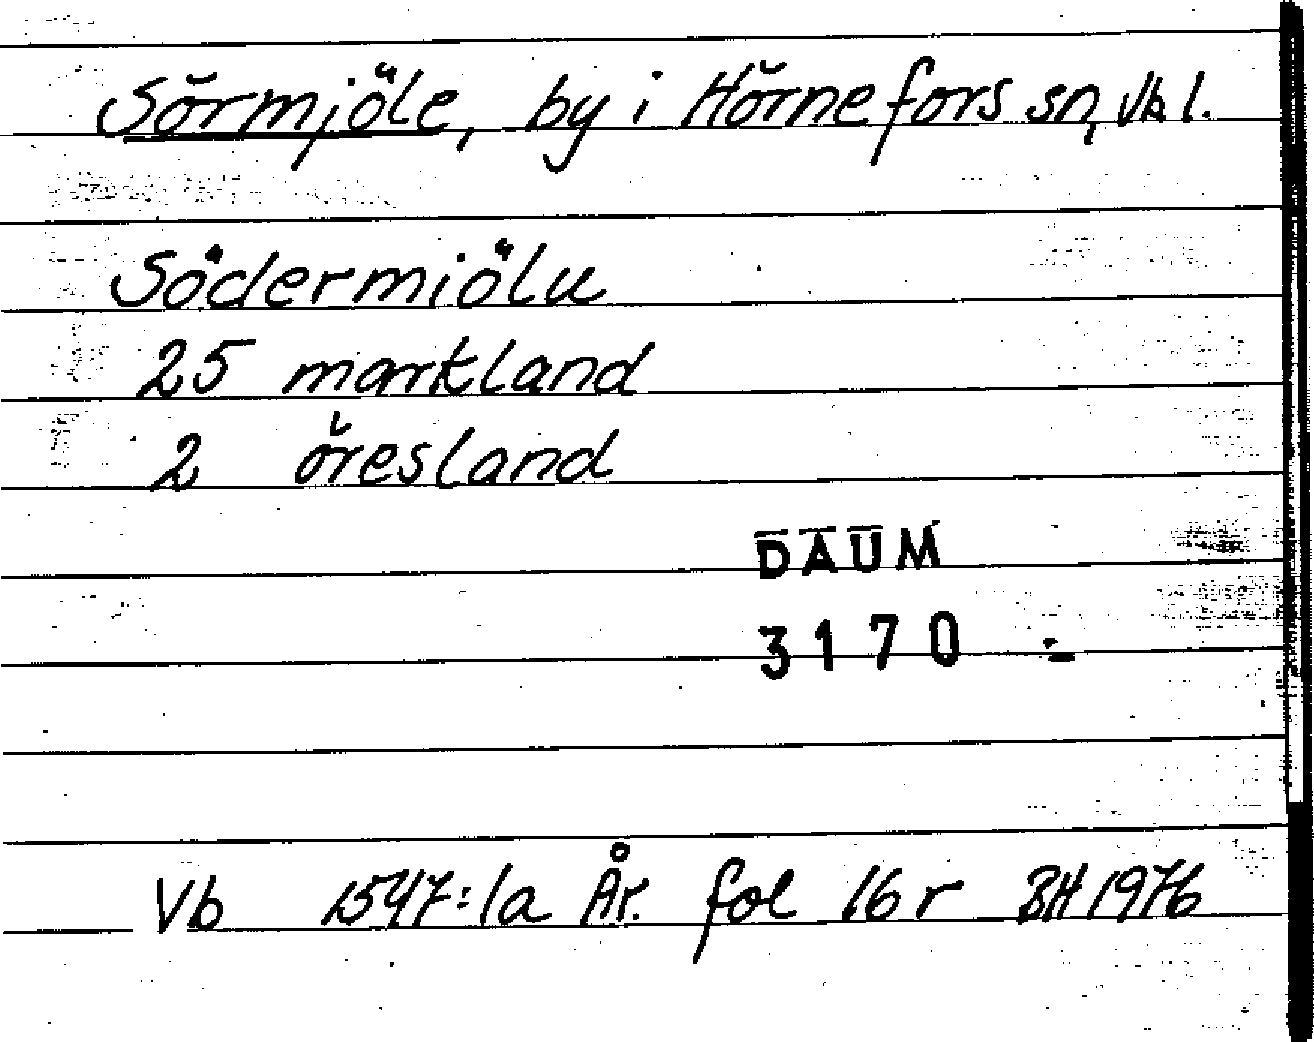 Sörmjöle, by i Hörnefors sn, Vb l.
Södermiölu
25 markland
2 öresland
DAUM
3170 -
Vb 1547:1a År. fol 16 r BH 1976